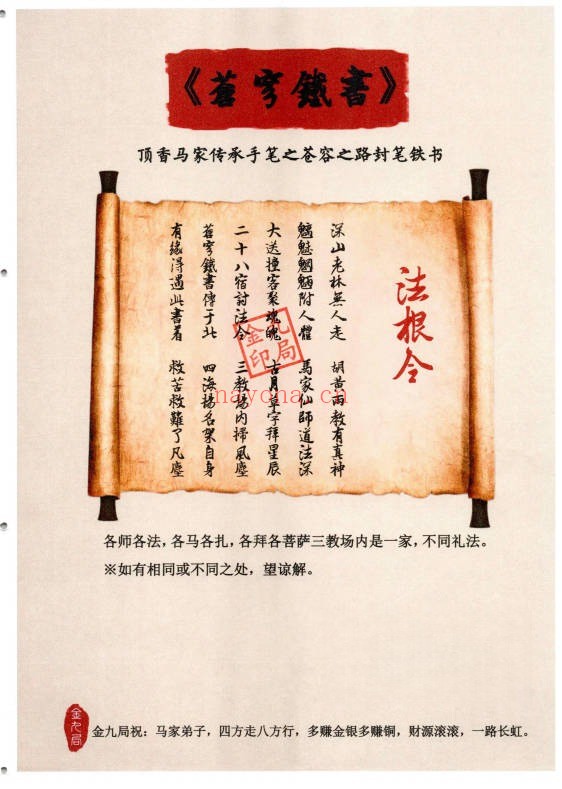 《蒼穹鐵書》
顶香马家传承手笔之苍容之路封笔铁书
法根令
深山老林無人走 胡黄两教有真神
魑魅魍魎附人體 馬家仙師道法深
大送撞客聚魂魄 古月草字拜星辰
二十八宿討法令 三教場内掃風塵
蒼穹鐵書傳于北 四海揚名架自身
有緣得遇此書着 救苦救難了凡塵
金九局印
mayona.cn
各师各法，各马各扎，各拜各菩萨三教场内是一家，不同礼法。
※如有相同或不同之处，望谅解。
金九局
金九局祝：马家弟子，四方走八方行，多赚金银多赚铜，财源滚滚，一路长虹。